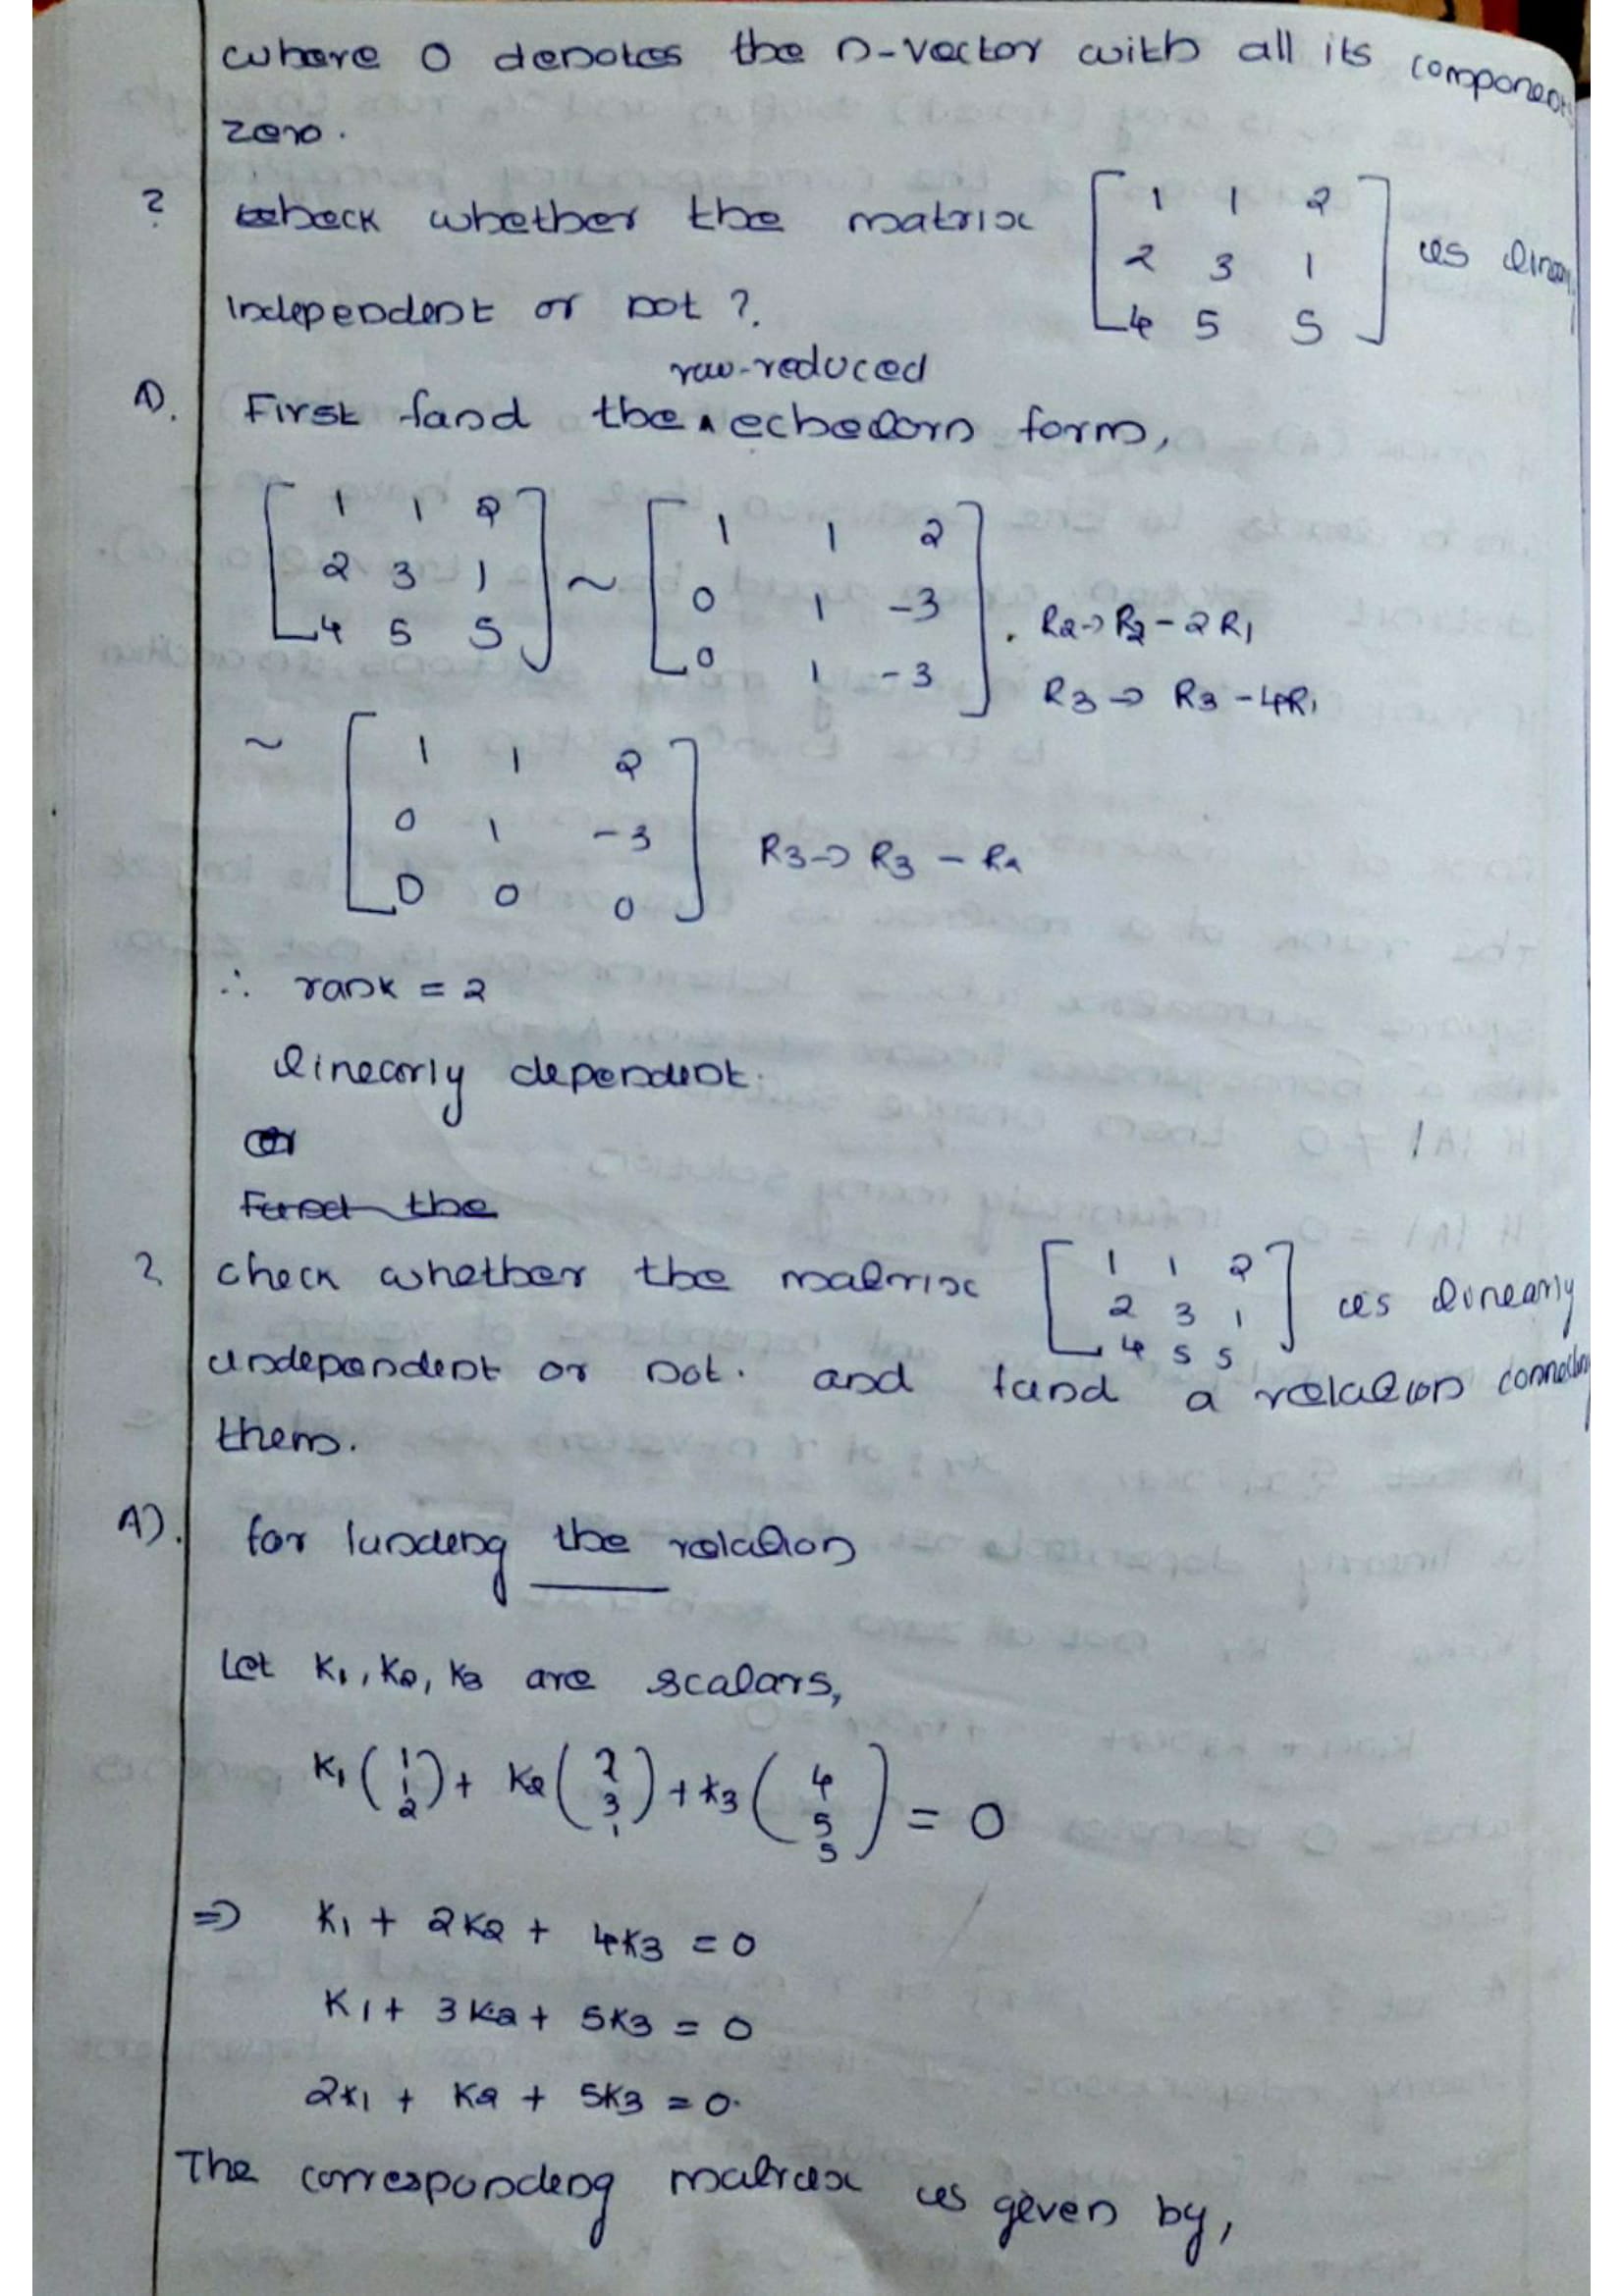 where 0 denotes the n-vector with all its components
zero.
? check whether the matrix [1 1 2; 2 3 1; 4 5 5] is linearly
independent or not ?.
row-reduced
A). First find the ^ echelorn form,
[1 1 2; 2 3 1; 4 5 5] ~ [1 1 2; 0 1 -3; 0 1 -3] . R2→R2-2R1
R3→R3-4R1
~ [1 1 2; 0 1 -3; 0 0 0] R3→R3-R2
∴ rank = 2
linearly dependent.
or
Find the
? check whether the matrix [1 1 2; 2 3 1; 4 5 5] is linearly
independent or not. and find a relation connecting
them.
A). for finding the relation
Let K1, K2, K3 are scalars,
K1(1 1 2) + K2(2 3 1) + K3(4 5 5) = 0
⇒ K1 + 2K2 + 4K3 = 0
K1 + 3K2 + 5K3 = 0
2K1 + K2 + 5K3 = 0.
The corresponding matrix is given by,